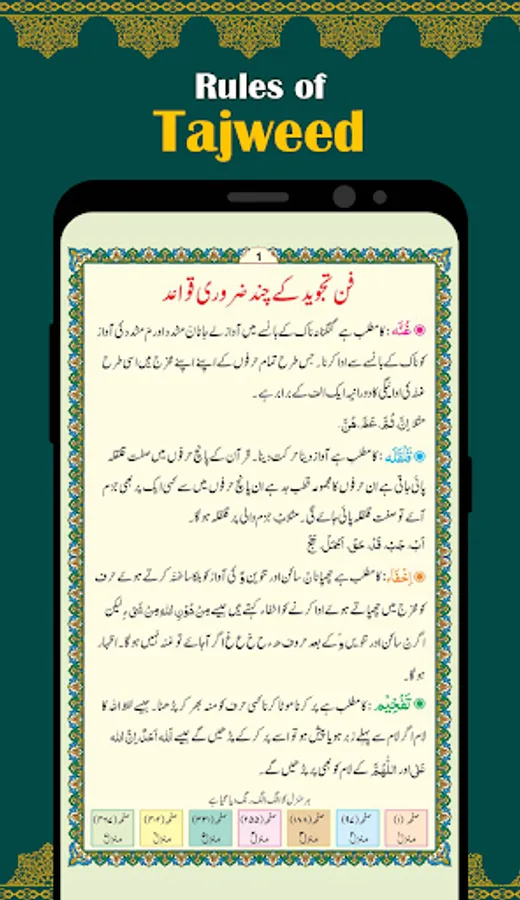 Rules of
Tajweed
1
فن تجوید کے چند ضروری قواعد
غُنَّه: کا مطلب ہے گنگنانہ ناک کے بانسے میں آواز لے جانا نّ مشدد اور مّ مشدد کی آواز
کو ناک کے بانسے سے ادا کرنا۔ جس طرح تمام حرفوں کے اپنے اپنے مخرج ہیں اسی طرح
غنہ کی ادائیگی کا دورانیہ ایک الف کے برابر ہے۔
مثلا اِنَّ، ثُمَّ، عَمَّ، هُنَّ،
قَلْقَلَه: کا مطلب ہے آواز دینا حرکت دینا۔ قرآن کے پانچ حرفوں میں صفت قلقلہ
پائی جاتی ہے ان حرفوں کا مجموعہ قطب جد ہے ان پانچ حرفوں میں سے کسی ایک پر بھی جزم
آئے تو صفت قلقلہ پائی جائے گی۔ مثلا جزم والی پر قلقلہ ہو گا۔
اِخْفَاء: کا مطلب ہے چھپانا نْ ساکن اور تنوین کی آواز کو ہلکا سا غنہ کرتے ہوئے حرف
کو مخرج میں چھپاتے ہوئے ادا کرنے کو اخفاء کہتے ہیں جیسے مِنْ دُوْنِ اللّٰهِ مِنْ شَیْءٍ لیکن
اگر نْ ساکن اور تنویں کے بعد حروف ء ہ ع ح غ خ اگر آ جائے تو غنہ نہیں ہو گا۔ اظہار
ہو گا۔
تَفْخِيْم: کا مطلب ہے پر کرنا موٹا کرنا کسی حرف کو منہ بھر کر پڑھنا۔ جیسے لفظ اللہ کا
لام اگر لام سے پہلے زبر ہو یا پیش ہو تو اسے پر کر کے پڑھیں گے جیسے اَللّٰهُ اَحَدٌ اِنَّ اللّٰهَ
اور اللّٰهُمَّ کے لام کو بھی پر پڑھیں گے۔
ہر منزل کو الگ الگ رنگ دیا گیا ہے
صفحہ (۱) صفحہ (۹۷) صفحہ (۱۸۸) صفحہ (۲۵۵) صفحہ (۳۳۱) صفحہ (۴۰۲) صفحہ (۴۷۵)
منزل منزل منزل منزل منزل منزل منزل